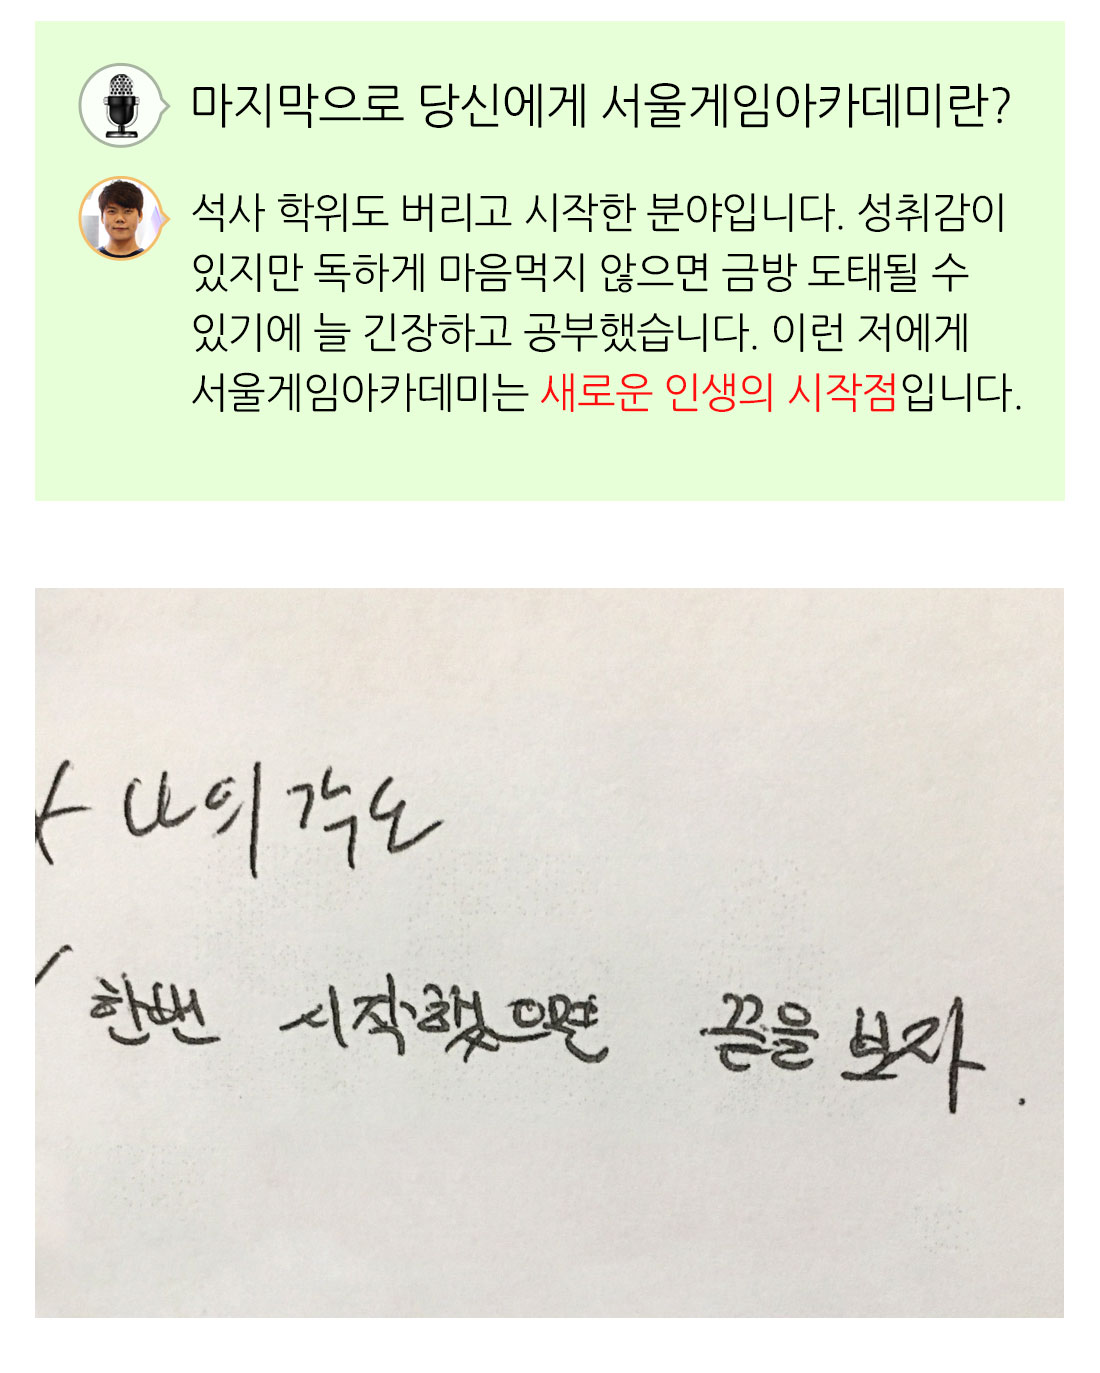 마지막으로 당신에게 서울게임아카데미란?
석사 학위도 버리고 시작한 분야입니다. 성취감이
있지만 독하게 마음먹지 않으면 금방 도태될 수
있기에 늘 긴장하고 공부했습니다. 이런 저에게
서울게임아카데미는 새로운 인생의 시작점입니다.
나의 각도
한번 시작했으면 끝을 보자.